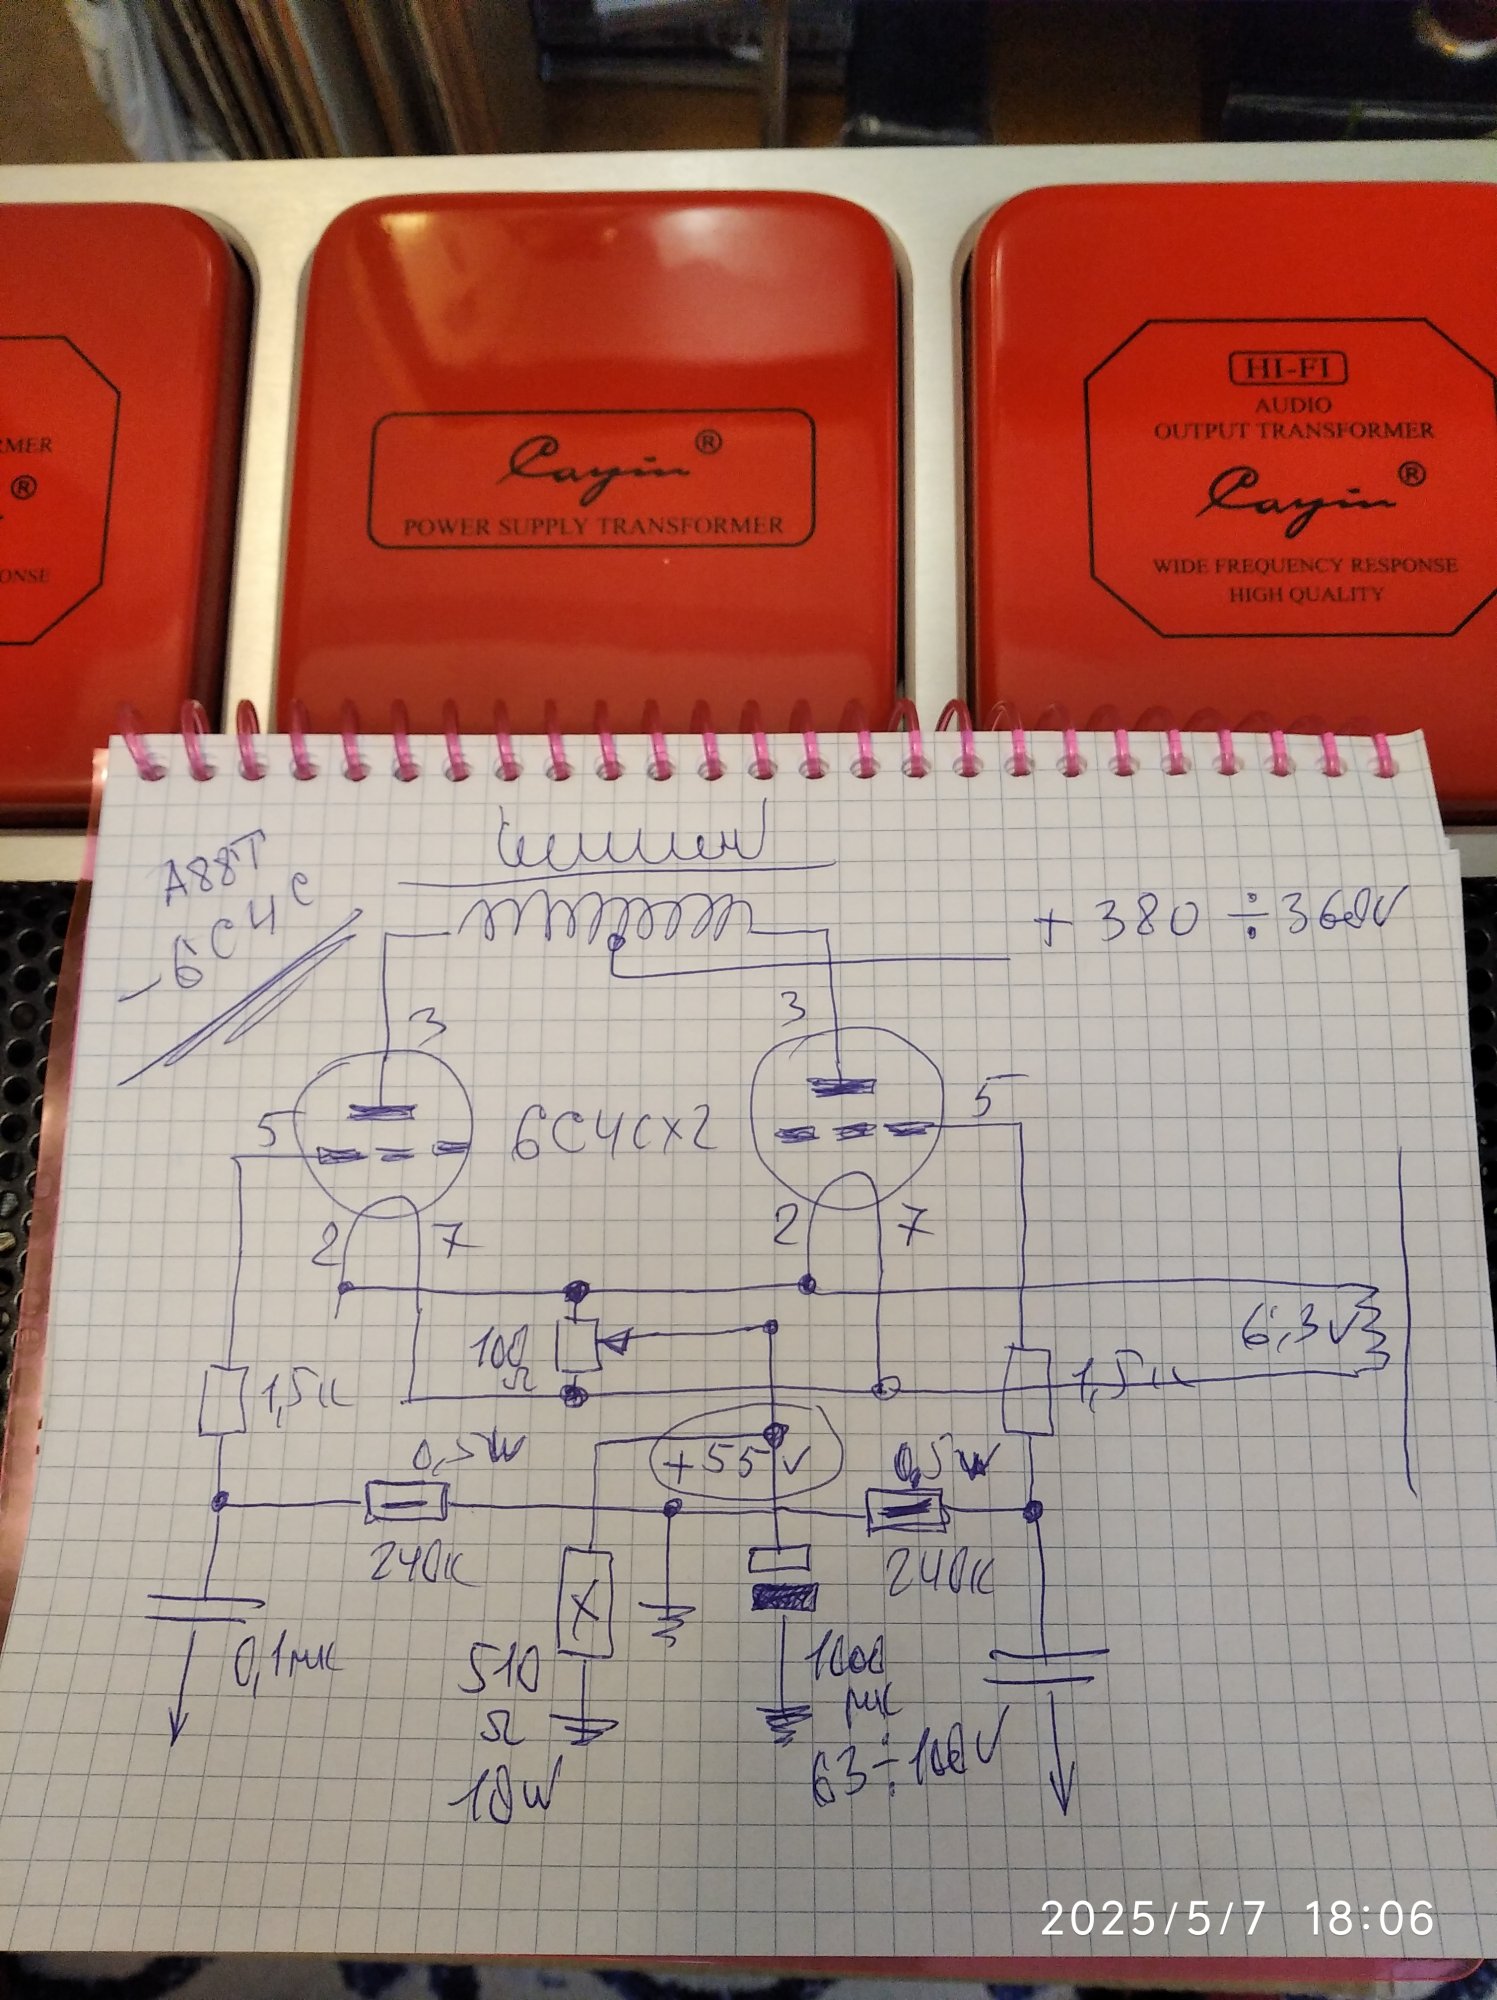 RMER
®
ONSE
Cayin ®
POWER SUPPLY TRANSFORMER
HI-FI
AUDIO
OUTPUT TRANSFORMER
Cayin ®
WIDE FREQUENCY RESPONSE
HIGH QUALITY
A88T
-6С4С
+ 380 ÷ 360V
3
3
5
6С4С x2
5
2
7
2
7
100
Ω
6,3V
1,5к
1,5к
0,5W
+55V
0,5W
240к
240к
0,1мк
510
Ω
10W
1000
мк
63÷100V
2025/5/7 18:06